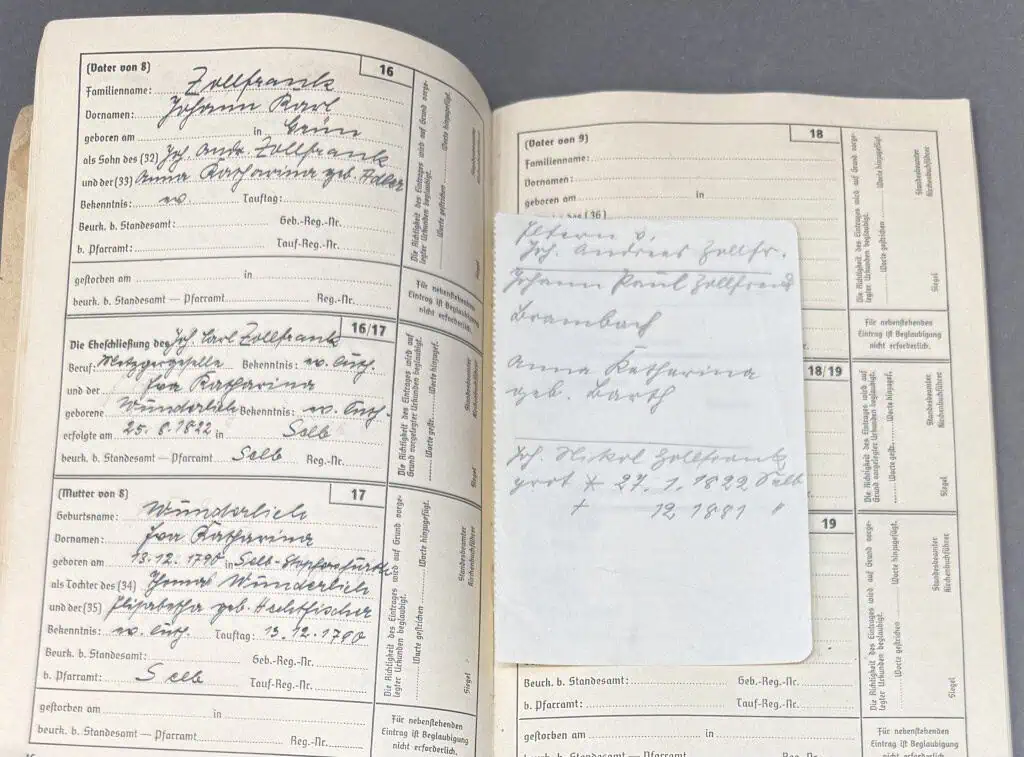 (Vater von 8) 16
Familienname: Zollfrank
Vornamen: Johann Karl
geboren am in Grün
als Sohn des (32) Joh. Andr. Zollfrank
und der (33) Anna Katharina geb. Adler
Bekenntnis: ev. Tauftag:
Beurk. b. Standesamt: Geb.-Reg.-Nr.
b. Pfarramt: Tauf-Reg.-Nr.
gestorben am in
beurk. b. Standesamt — Pfarramt Reg.-Nr.
Die Richtigkeit des Eintrages wird auf Grund vorge-
legter Urkunden beglaubigt. Worte hinzugefügt.
Worte gestrichen
Standesbeamter
Kirchenbuchführer
Siegel
Für nebenstehenden
Eintrag ist Beglaubigung
nicht erforderlich.
16/17
Die Eheschließung des Joh. Carl Zollfrank
Beruf: Metzgergeselle Bekenntnis: ev. luth.
und der Eva Katharina
geborene Wunderlich Bekenntnis: ev. luth.
erfolgte am 25.8.1822 in Selb
beurk. b. Standesamt — Pfarramt Selb
Die Richtigkeit des Eintrages wird auf
Grund vorgelegter Urkunden beglaubigt.
Worte gestr. Worte hinzugef.
Standesbeamter
Kirchenbuchführer
Siegel
(Mutter von 8) 17
Geburtsname: Wunderlich
Vornamen: Eva Katharina
geboren am 13.12.1790 in Selb-
als Tochter des (34) Thomas Wunderlich
und der (35) Elisabetha geb.
Bekenntnis: ev. luth. Tauftag: 13.12.1790
Beurk. b. Standesamt: Geb.-Reg.-Nr.
b. Pfarramt: Selb Tauf-Reg.-Nr.
gestorben am in
beurk. b. Standesamt — Pfarramt Reg.-Nr.
Die Richtigkeit des Eintrages wird auf Grund vorge-
legter Urkunden beglaubigt. Worte hinzugefügt.
Worte gestrichen
Standesbeamter
Kirchenbuchführer
Siegel
Für nebenstehenden
Eintrag ist Beglaubigung
nicht erforderlich.
(Vater von 9) 18
Familienname:
Vornamen:
geboren am in
des (36)
Die Richtigkeit des Eintrages wird auf Grund vorge-
legter Urkunden beglaubigt. Worte hinzugefügt.
Worte gestrichen
Standesbeamter
Kirchenbuchführer
Siegel
Für nebenstehenden
Eintrag ist Beglaubigung
nicht erforderlich.
Eltern v.
Joh. Andreas Zollfr.
Johann Paul Zollfrank
Brambach
Anna Katharina
geb. Barth
Joh. Nikol Zollfrank
* 27.1.1822 Selb
+ 12 1881 "
18/19
Die Richtigkeit des Eintrages wird auf
Grund vorgelegter Urkunden beglaubigt.
Worte gestr. Worte hinzugef.
Standesbeamter
Kirchenbuchführer
Siegel
19
Die Richtigkeit des Eintrages wird auf Grund vorge-
legter Urkunden beglaubigt. Worte hinzugefügt.
Worte gestrichen
Standesbeamter
Kirchenbuchführer
Siegel
Beurk. b. Standesamt: Geb.-Reg.-Nr.
b. Pfarramt: Tauf-Reg.-Nr.
gestorben am in
beurk. b. Standesamt — Pfarramt Reg.-Nr.
Für nebenstehenden
Eintrag ist Beglaubigung
nicht erforderlich.